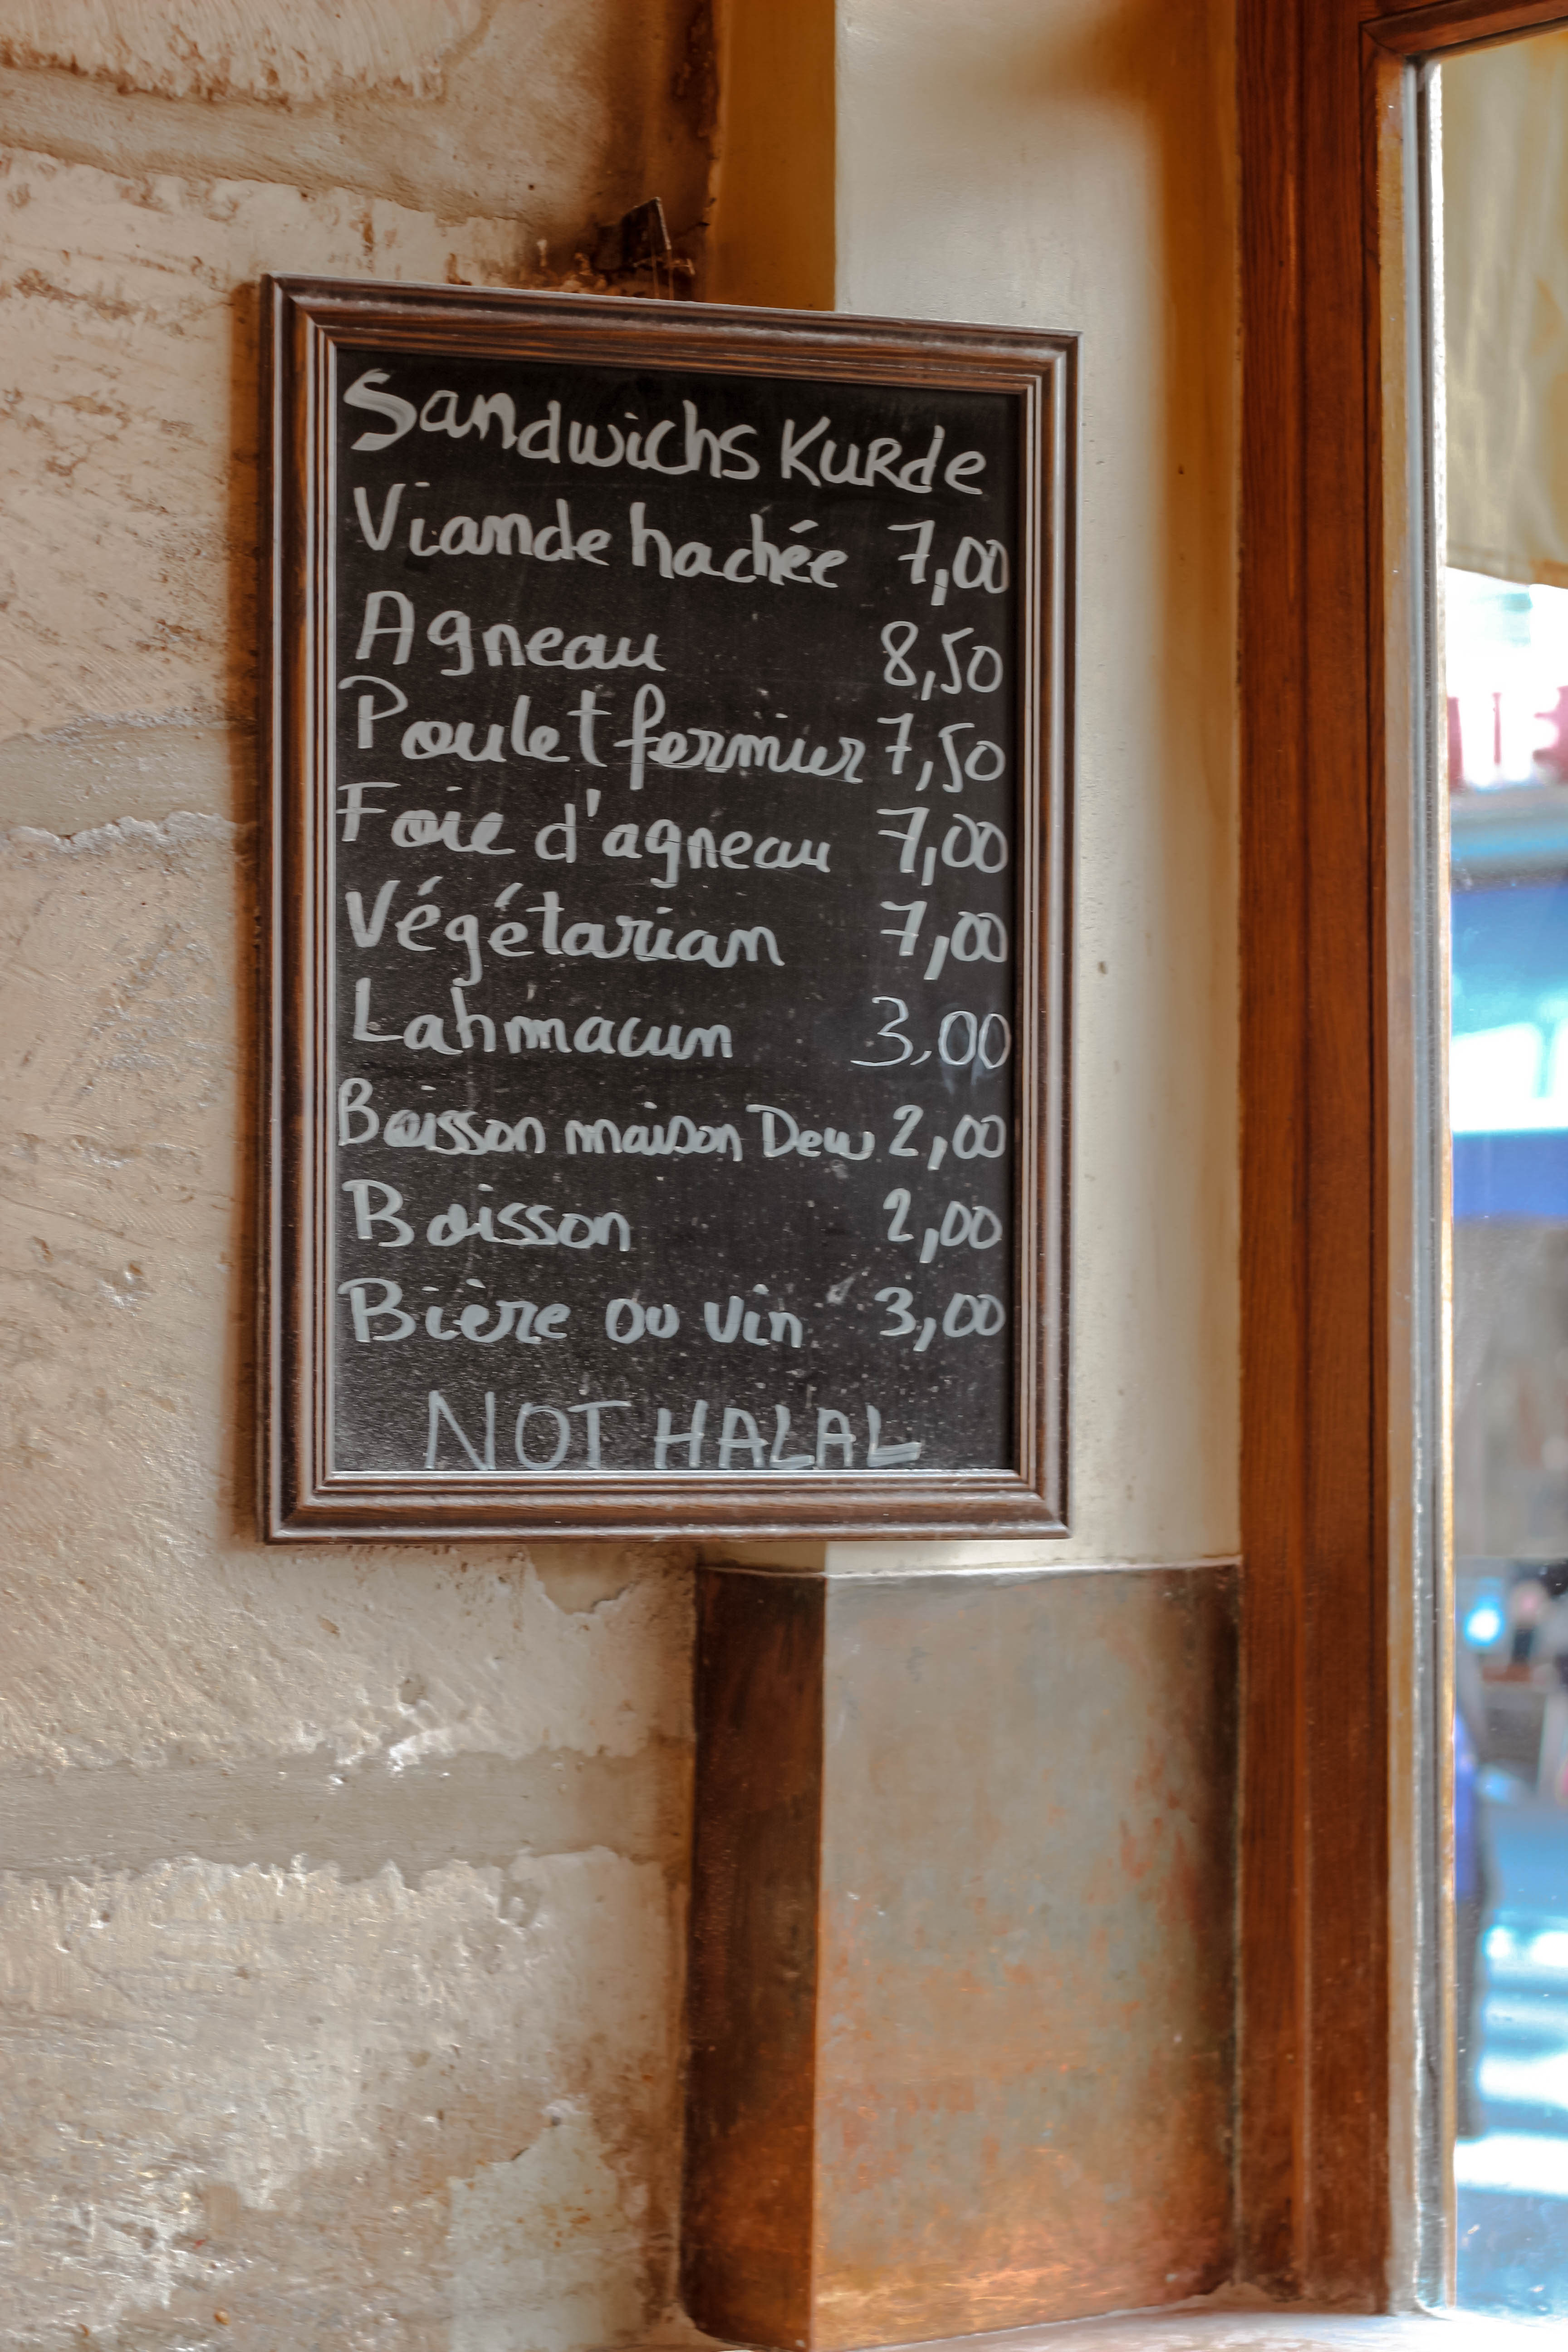 Sandwichs Kurde
Viande hachée 7,00
Agneau 8,50
Poulet fermier 7,50
Foie d'agneau 7,00
Végétarian 7,00
Lahmacun 3,00
Boisson maison Dew 2,00
Boisson 2,00
Bière ou vin 3,00
NOT HALAL